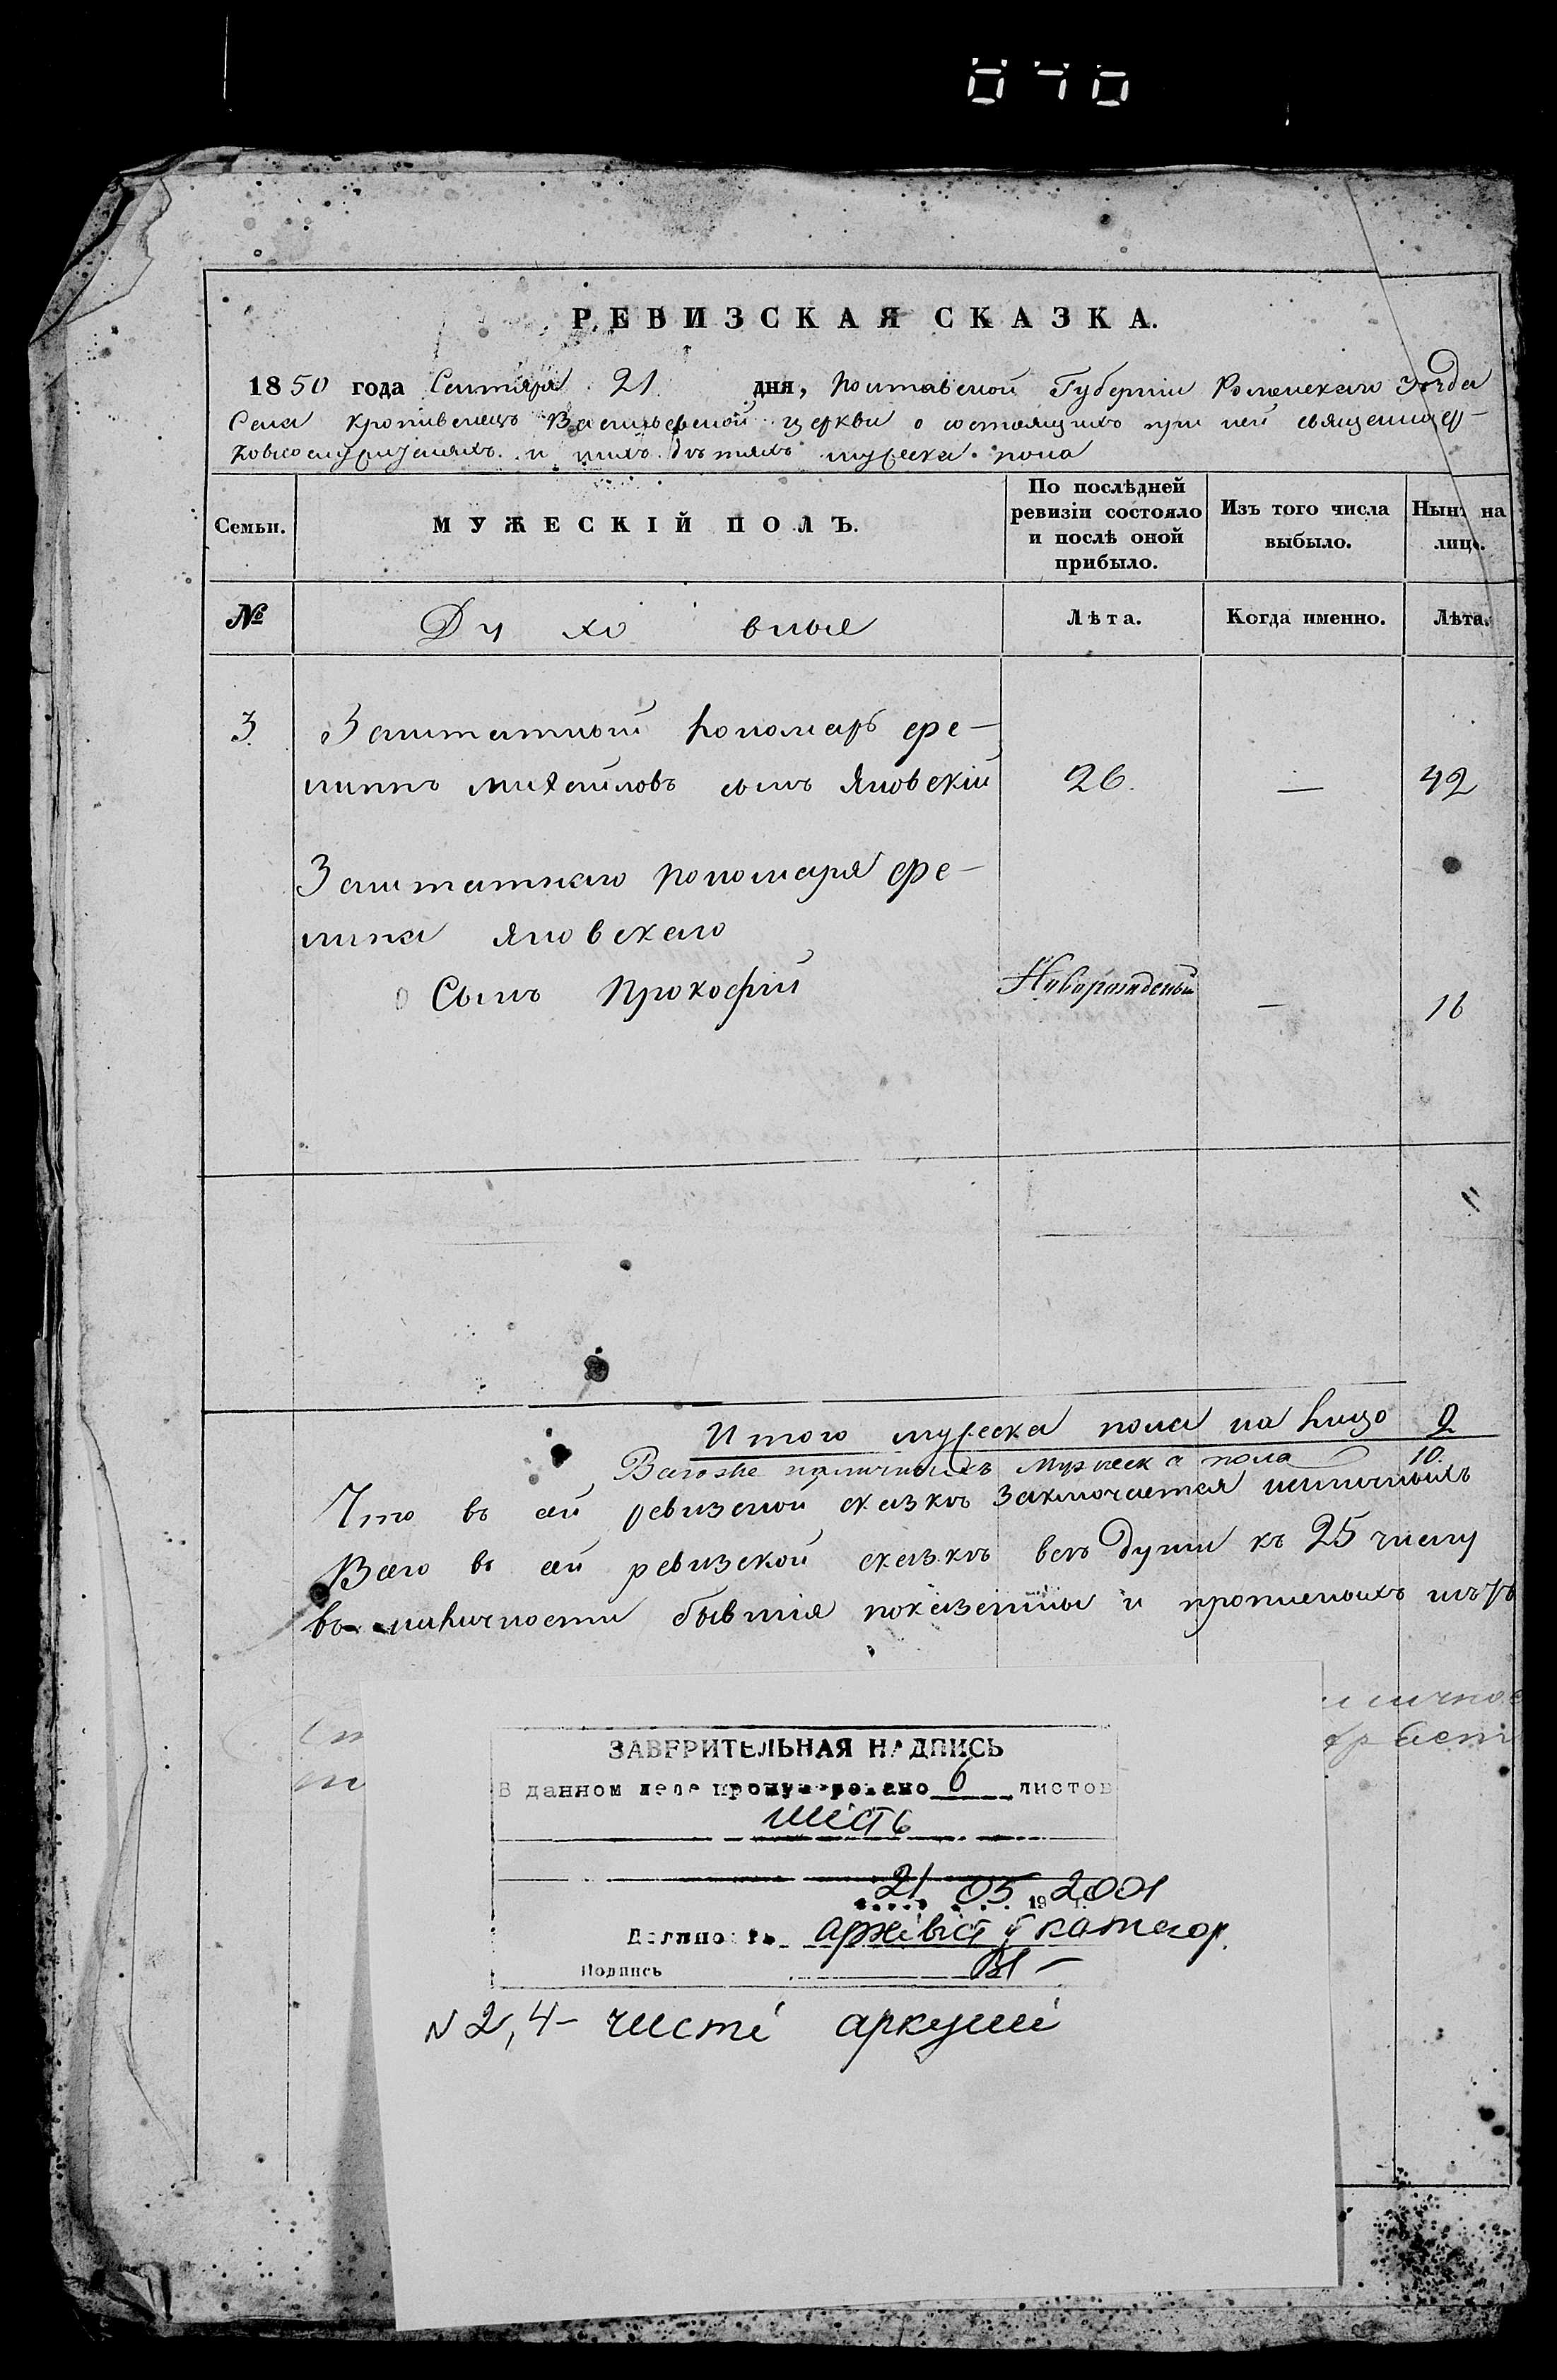 040
РЕВИЗСКАЯ СКАЗКА.
1850 года Сентября 21 дня, Полтавской Губернии Роменскаго Уезда
Села Кропивенецъ Васильевской церкви о состоящихъ при ней священноцер-
ковнослужителяхъ и ихъ детяхъ мужеска пола
Семьи.
МУЖЕСКІЙ ПОЛЪ.
По послѣдней ревизіи состояло и послѣ оной прибыло.
Изъ того числа выбыло.
Нынѣ на лицо.
№
Духовные
Лѣта.
Когда именно.
Лѣта.
3. Заштатный Пономарь Фи-
липпъ Михайловъ сынъ Яновскій 26. — 42
Заштатнаго Пономаря Фи-
липа Яновскаго
Сынъ Прокофій Новорожденый — 16
Итого мужеска пола на лицо 2
Всего же наличныхъ мужеска пола 10.
Что въ сей ревизской сказкѣ заключается наличныхъ
Всего въ сей ревизской сказкѣ всѣ души къ 25 числу
въ наличности бывшія показанны и прописныхъ нѣтъ
ЗАВЕРИТЕЛЬНАЯ НАДПИСЬ
В данном деле пронумеровано 6 листов
шість
21 05 19 2001 г.
Должность архівіст категор.
Подпись
N 2, 4 - чисті аркуші